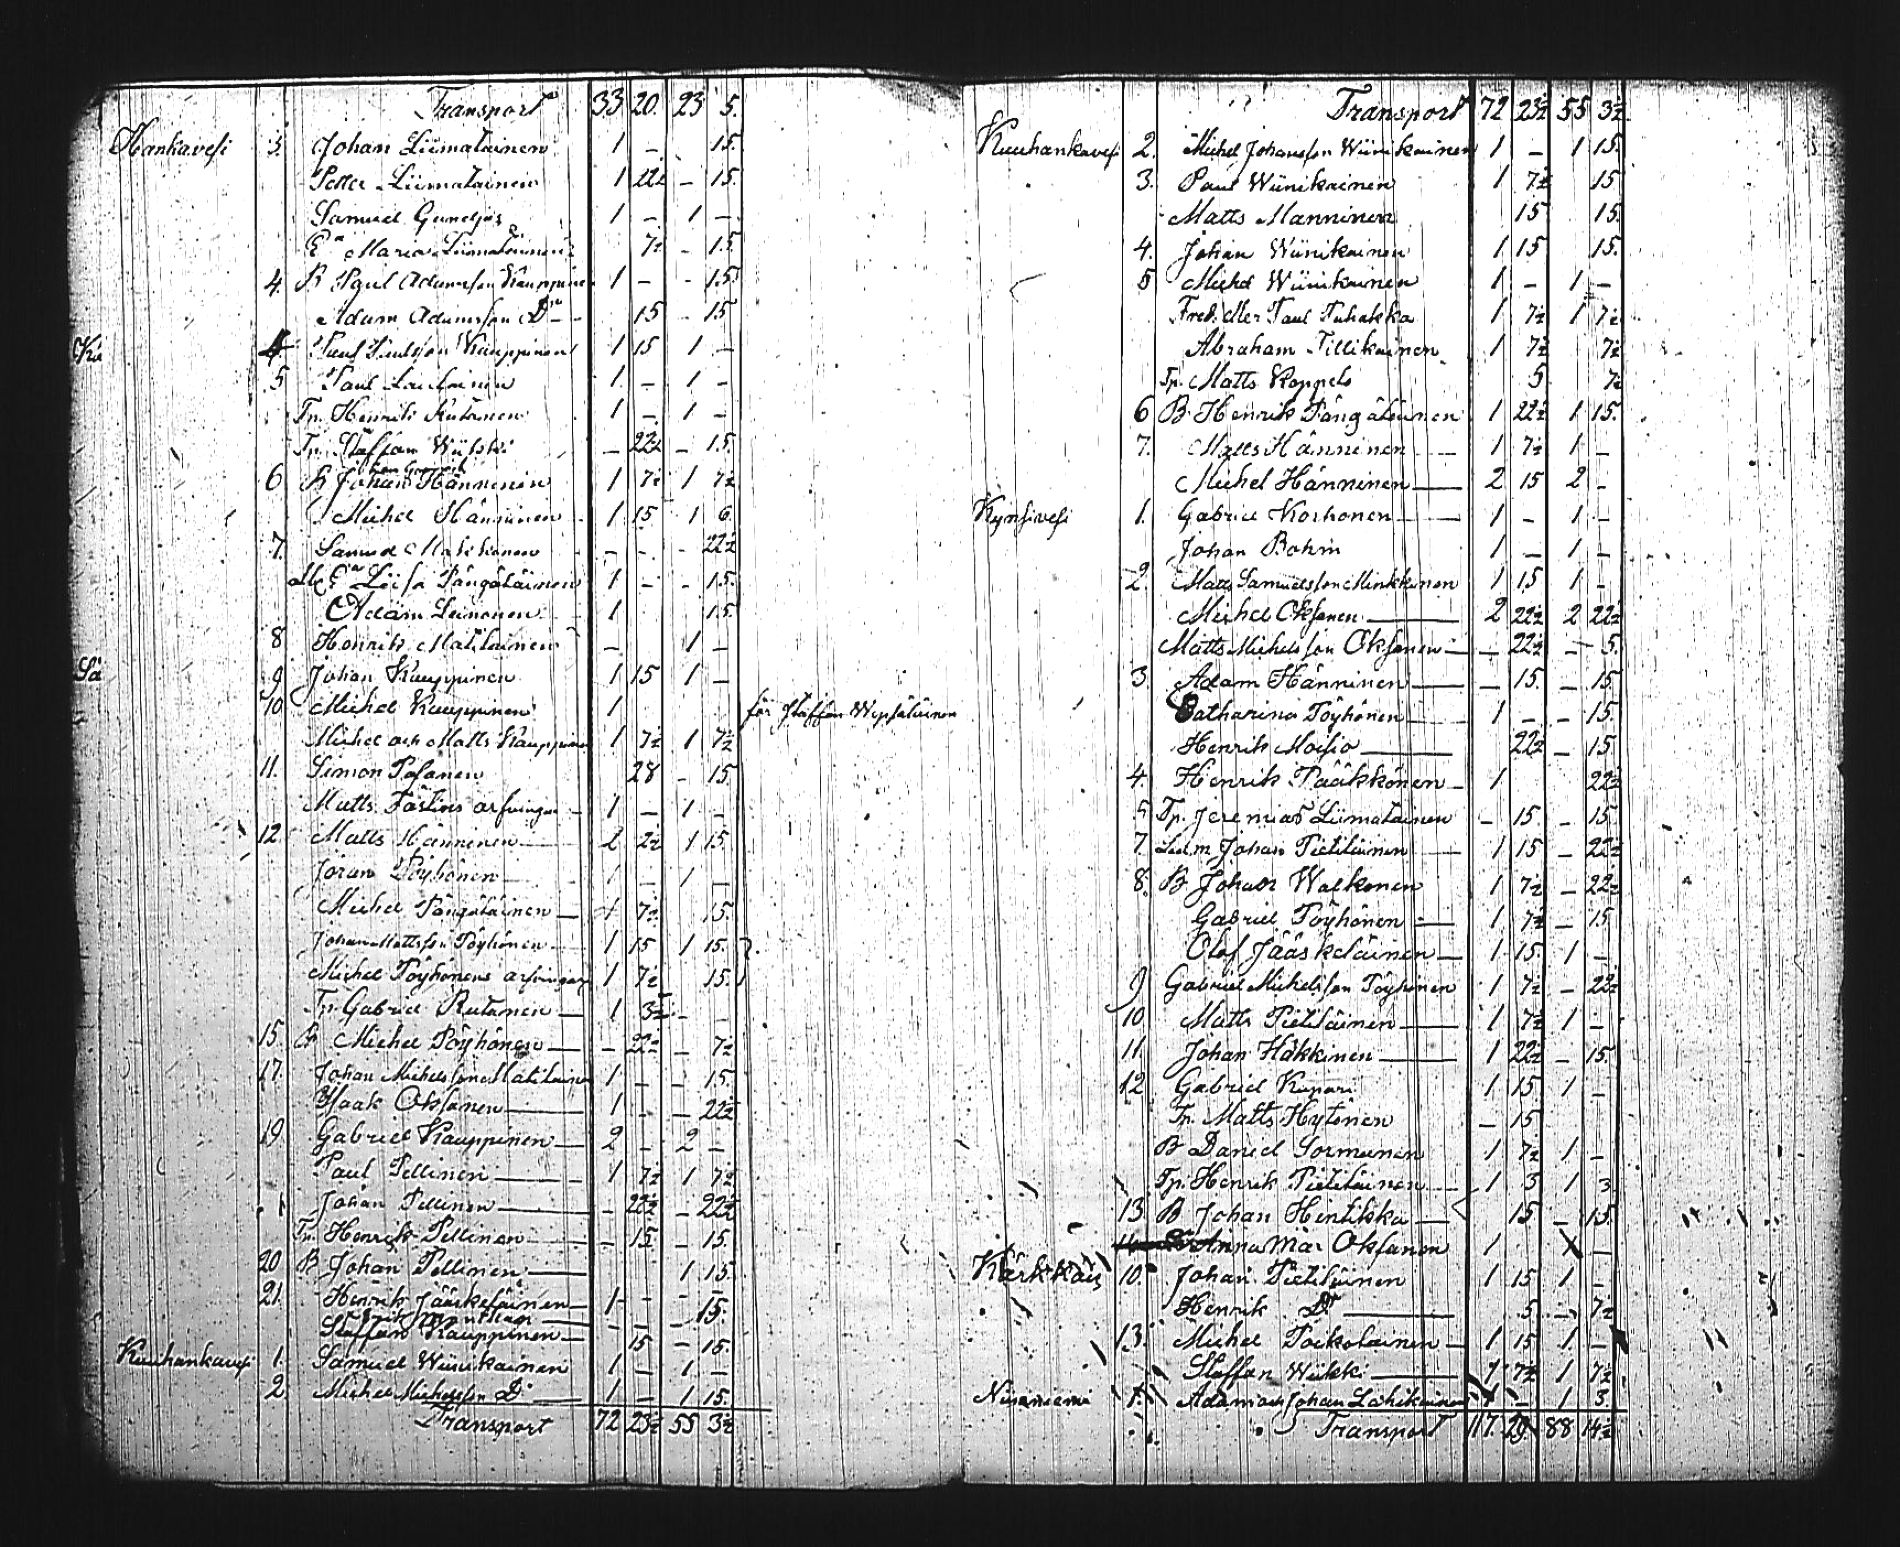 Transport 33 20. 23 5.
Hankavesi 3. Johan Liimatainen 1 – 15.
Petter Liimatainen 1 22½ – 15.
Samuel 1 – 1 –
Ea Maria Liimatainen 7½ – 15.
4. B Paul Adamsson Kauppinen 1 – - 15.
Adam Adamsson Do – 15 – 15
4. Paul Paulsson Kauppinen 1 15 1 –
5 Paul 1 – 1 –
Tp. Henrik Rutanen 1 – 1 –
Tp. Staffan – 22½ – 15.
6 B Johan Hänninen 1 7½ 1 7½
Michel Hänninen 1 15 1 6.
7. Samuel Matilainen – - - 22½
Ea Lovisa Pängäläinen 1 – - 15.
Adam Leinonen 1 15.
8 Henrik Matilainen – 1 –
9 Johan Kauppinen 1 15 1 –
10 Michel Kauppinen 1 för Staffan
Michel och Matts Kauppinen 1 7½ 1 7½
11. Simon Pasanen 28 – 15
Matts arfvingar – 1 – 1 –
12. Matts Hänninen 2 2½ 1 15.
Jöran Pöyhönen 1 – 1 –
Michel Pängäläinen – 1 7½ 15.
Johan Mattsson Pöyhönen 1 15 1 15.
Michel Pöyhönens arfvingar 1 7½ 15.
Tp. Gabriel Rutanen – 1 3½ - –
15. B Michel Pöyhönen – – 22½ – 7½
17. Johan Michelsson Matilainen 1 – – 15.
Isaak Oksanen 1 - – 22½
19. Gabriel Kauppinen – 2 – 2 –
Paul Pellinen – 1 7½ 1 7½
Johan Pellinen – – 22½ – 22½
Tp. Henrik Pellinen – – 15 – 15.
20 B Johan Pellinen – 1 15.
21. Henrik Jääskeläinen – 1 – - –
– – – 15.
Staffan Kauppinen – 15 – 15.
Kuuhankavesi 1. Samuel Wiinikainen 1 – 1 –
2. Michel Michelsson Do 1 – 1 15.
Transport 72 23½ 55 3½
Transport 72 23½ 55 3½
Kuuhankavesi 2. Michel Johansson Wiinikainen 1 – 1 15.
3. Paul Wiinikainen 1 7½ 15
Matts Manninen 15 15.
4. Johan Wiinikainen 1 15 15.
5 Michel Wiinikainen 1 – 1 –
Paul Puhakka 1 7½ 1 7½
Abraham Tillikainen 1 7½ 7½
Tp. Matts 5 7½
6 B Henrik Pängäläinen 1 22½ 1 15.
7. Matts Hänninen – 1 7½ 1 –
Michel Hänninen – 2 15 2 –
Kynsivesi 1. Gabriel Korhonen – 1 – 1 –
Johan Bohm 1 – 1 –
2. Matts Samuelsson Minkkinen 1 15 1 –
Michel Oksanen – 2 22½ 2 22½
Matts Michelsson Oksanen – – 22½ – 5.
3. Adam Hänninen – – 15. – 15.
Catharina Pöyhönen – 1 – – 15.
Henrik Moisio – 22½ – 15
4. Henrik Pääkkönen – 1 22½
5 Tp. Jeremias Liimatainen – 15 – 15.
7 Johan Pietiläinen – 1 15 – 22½
8. B Johan Walkonen 1 7½ – 22½
Gabriel Pöyhönen – 1 7½ – 15
Olof Jääskeläinen – 1 15. 1 –
9 Gabriel Michelsson Pöyhönen 1 7½ – 22½
10 Matts Pietiläinen – 1 7½ 1 –
11. Johan Häkkinen – 1 22½ – 15.
12 Gabriel Kupari 1 15 1 –
Tp. Matts Hytönen – 15
B Daniel Sormunen 1 7½ 1 –
Tp. Henrik Pietiläinen – 1 3 1 3
13 B Johan Hentikka – 15 – 15.
Anna Mar Oksanen 1 –
10. Johan Pietiläinen 1 15 1 –
Henrik Do – 5 – 7½
13. Michel – 1 15 1 –
Staffan Wiikki – 1 7½ 1 7½
Niinimemi 1. Adam och Johan Lähikainen – 1 3
Transport 117. 29. 88 14½